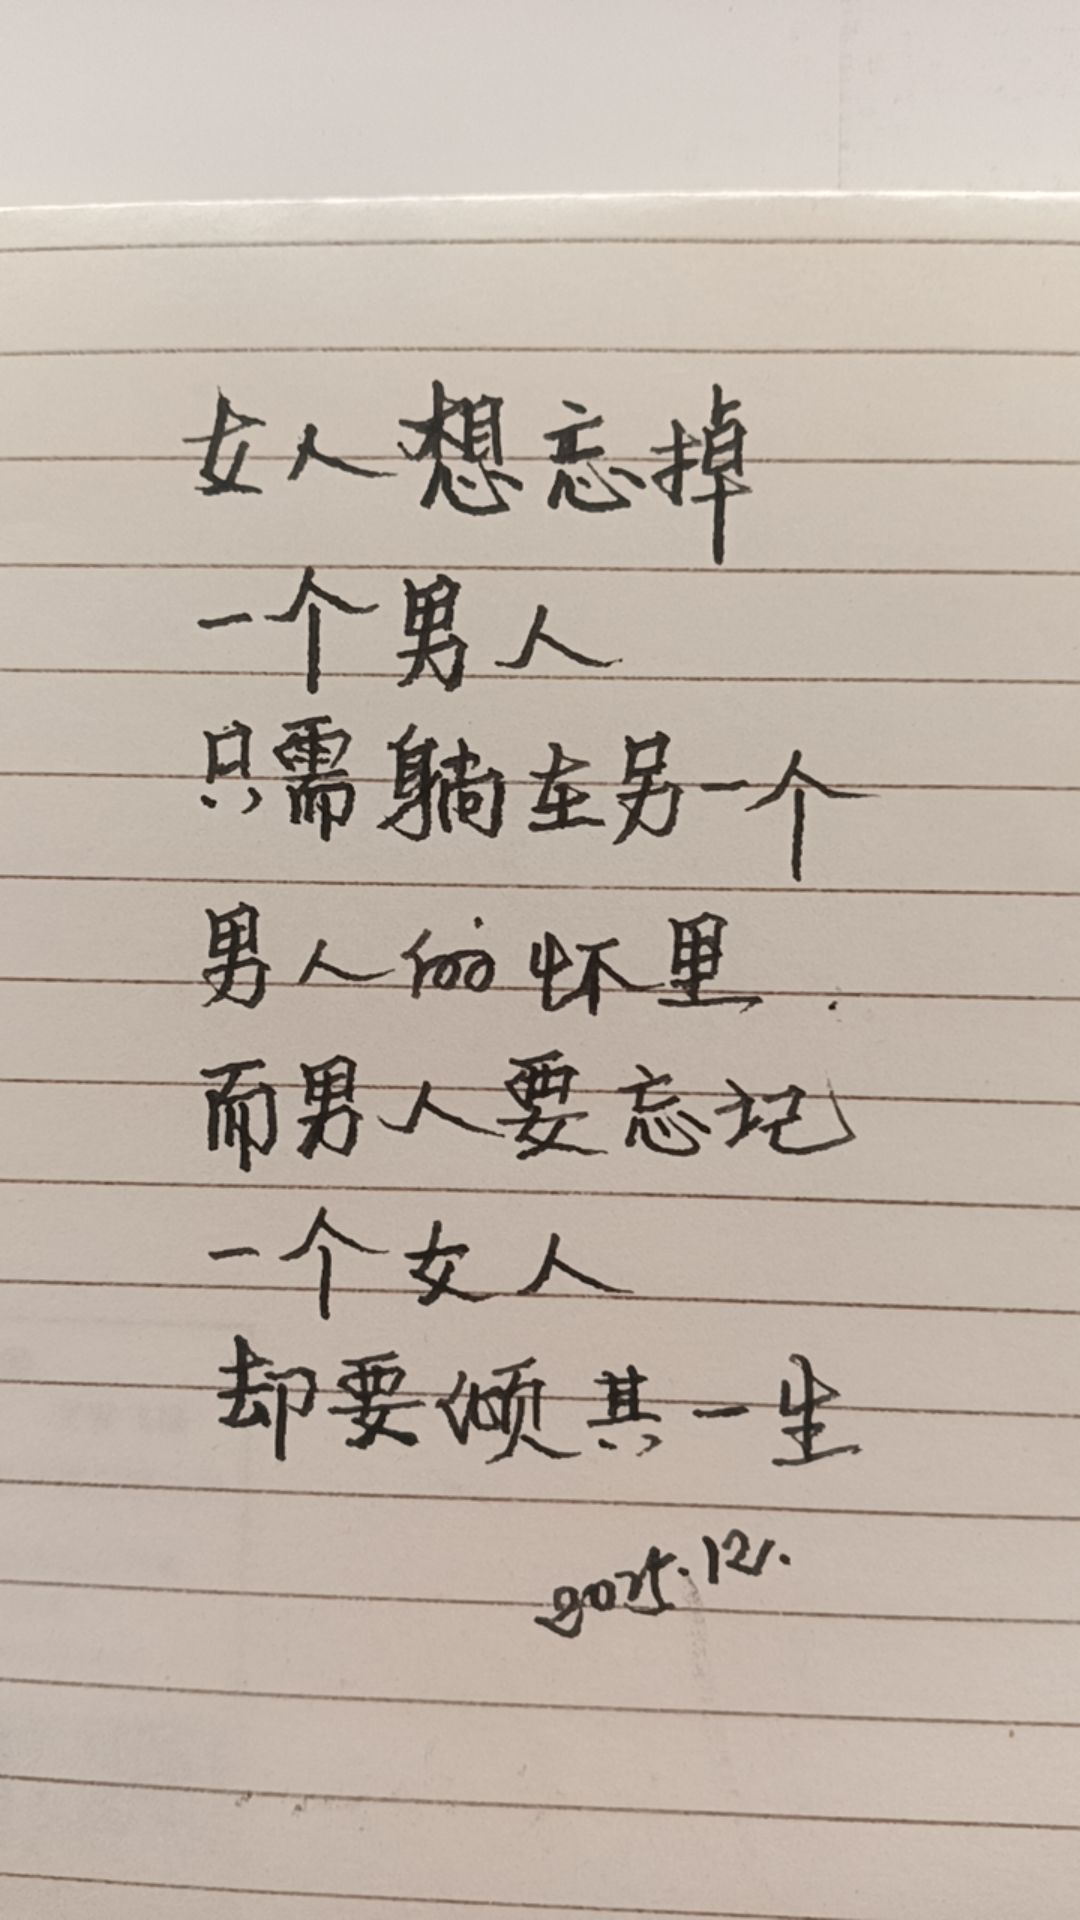 女人想忘掉
一个男人
只需躺在另一个
男人的怀里
而男人要忘记
一个女人
却要倾其一生
2025.12.